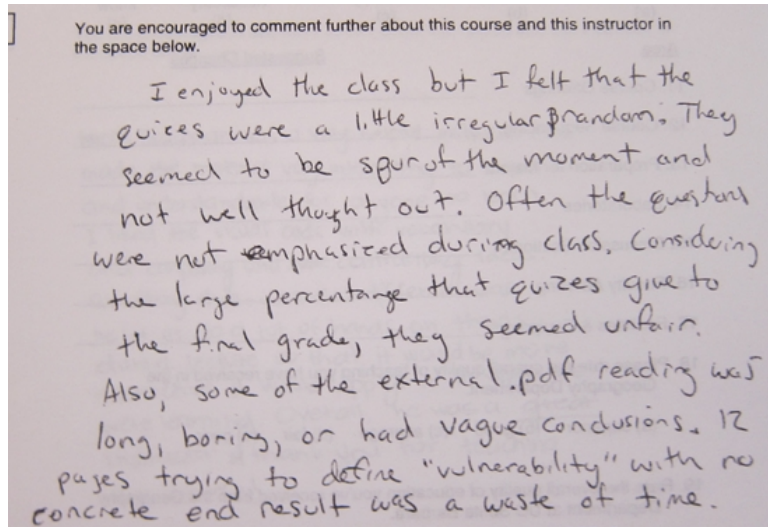 You are encouraged to comment further about this course and this instructor in
the space below.
I enjoyed the class but I felt that the
quices were a little irregular & random. They
seemed to be spur of the moment and
not well thought out. Often the questions
were not emphasized during class. Considering
the large percentange that quizes give to
the final grade, they seemed unfair.
Also, some of the external .pdf reading was
long, boring, or had vague conclusions. 12
pages trying to define "vulnerability" with no
concrete end result was a waste of time.